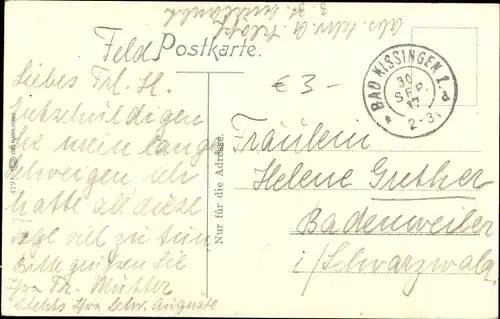 Feld Postkarte.
€ 3-
BAD KISSINGEN 1.
30
SEP.
17
2-3
Liebes Frl. H.
Entschuldigen
Sie mein langes
schweigen ich
hatte all diese
Tage viel zu tun
Bitte grüßen Sie
Ihre Fr. Mutter
stets Ihre Schw. Auguste
Nur für die Adresse.
Fräulein
Helene Guther
Badenweiler
i/Schwarzwald